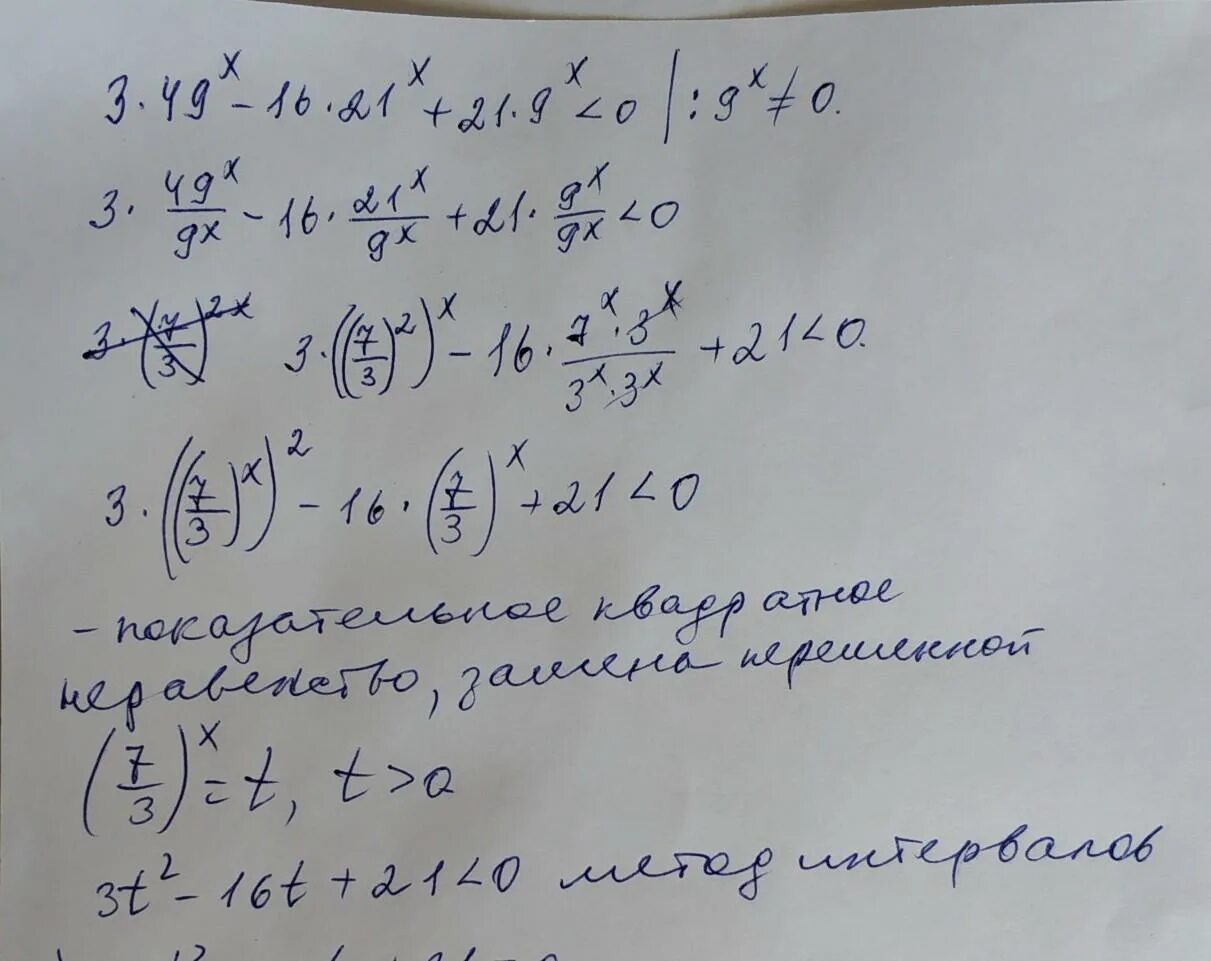 3·49^x - 16·21^x + 21·9^x < 0 | : 9^x ≠ 0.
3· 49^x/9^x - 16· 21^x/9^x + 21· 9^x/9^x < 0
3·(7/3)^2x 3·((7/3)^2)^x - 16· 7^x·3^x/3^x·3^x + 21 < 0.
3·((7/3)^x)^2 - 16·(7/3)^x + 21 < 0
- показательное квадратное
неравенство, замена переменной
(7/3)^x = t, t > 0
3t^2 - 16t + 21 < 0 метод интервалов